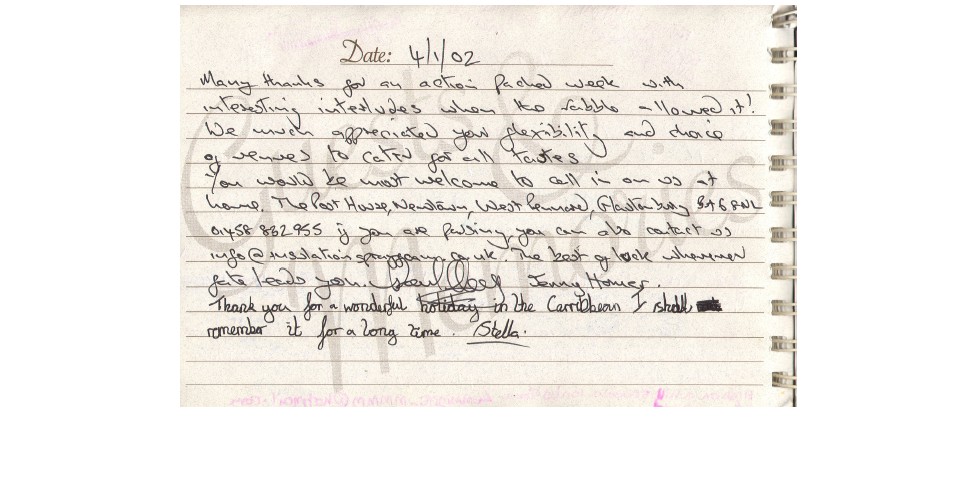 Date: 4/1/02
Many thanks for an action packed week with
interesting interludes when the allowed it!
We much appreciated your flexibility and choice
of venues to cater for all tastes
You would be most welcome to call in on us at
home. The Post House, Newtown, West Pennard, Glastonbury BA6 8NL
01458 832955 if you are passing, you can also contact us
The best of luck wherever
fate leads you. Jenny Homer.
Thank you for a wonderful holiday in the Carribbean I shall
remember it for a long time. Stella.
Guests & Co.
Memories